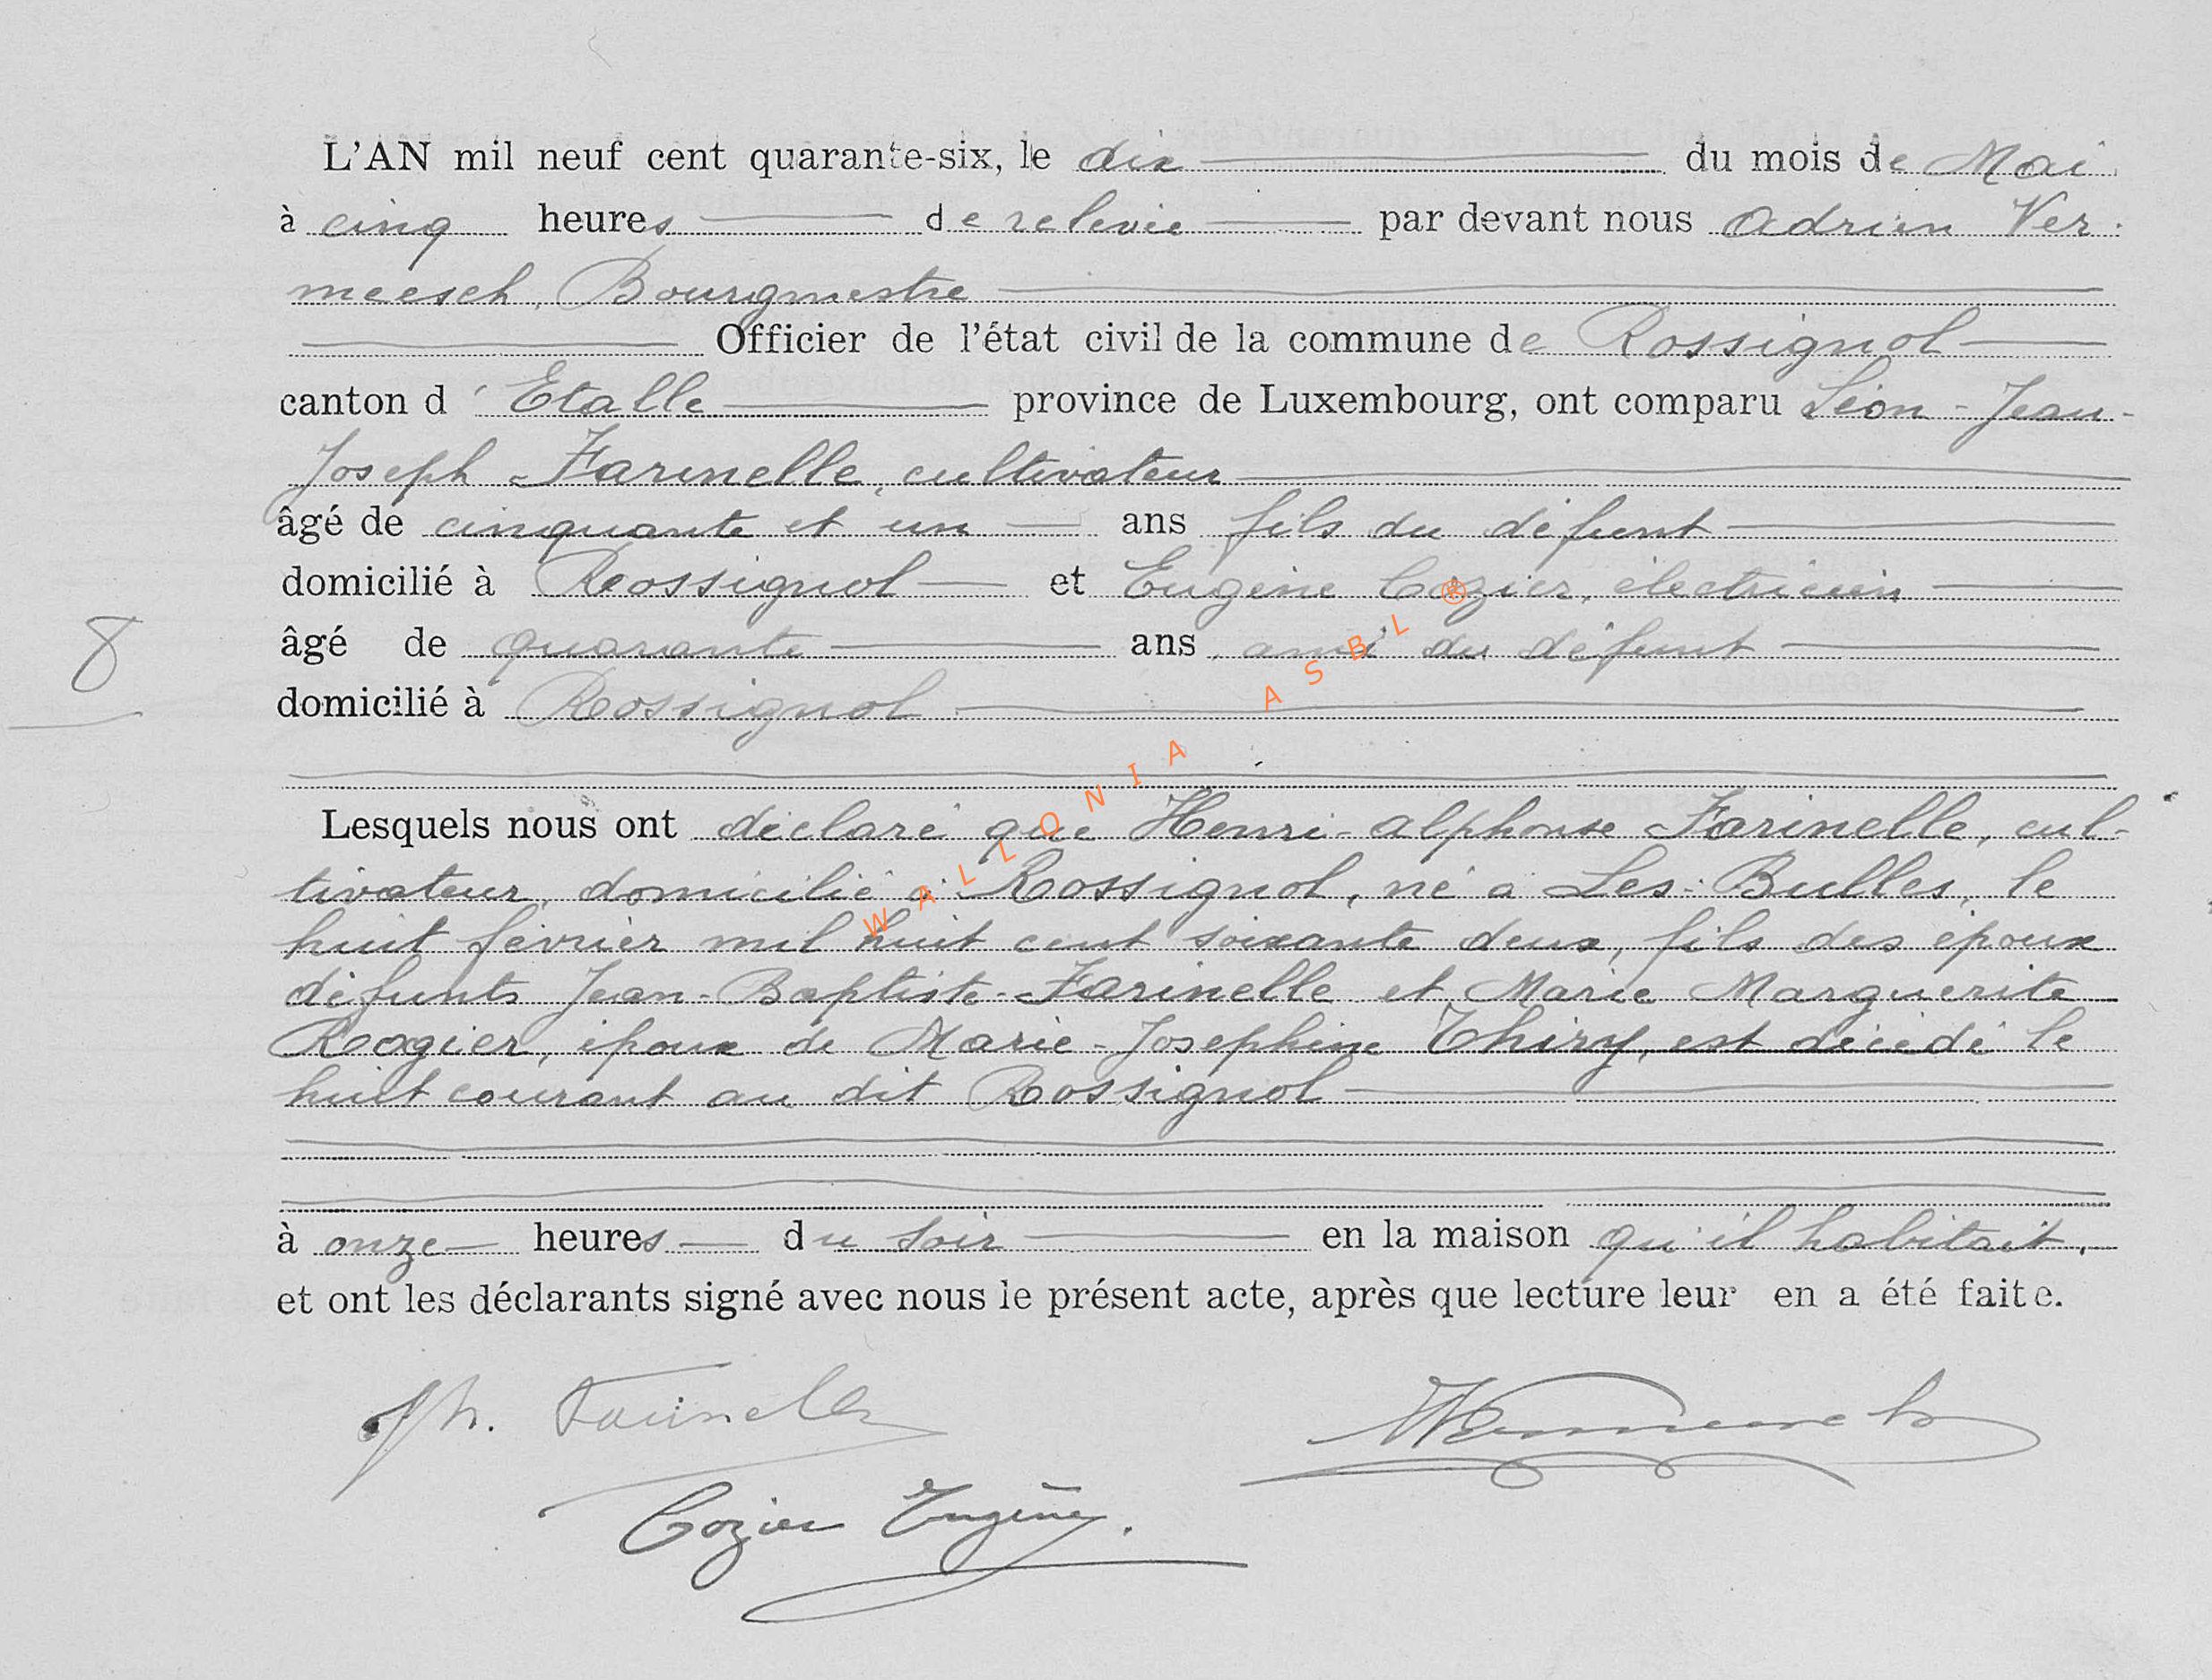 L'AN mil neuf cent quarante-six, le dix du mois de Mai
à cinq heures de relevée par devant nous Adrien Ver-
meesch, Bourgmestre
Officier de l'état civil de la commune de Rossignol
canton d'Etalle province de Luxembourg, ont comparu Léon-Jean-
Joseph Farinelle, cultivateur
âgé de cinquante et un ans fils du défunt
domicilié à Rossignol et Eugène Cozier, électricien
âgé de quarante ans, ami du défunt
8
domicilié à Rossignol
Lesquels nous ont déclaré que Henri-Alphonse Farinelle, cul-
tivateur, domicilié à Rossignol, né à Les-Bulles, le
huit février mil huit cent soixante deux, fils des époux
défunts Jean-Baptiste-Farinelle et Marie Marguerite
Rogier, époux de Marie-Josephine Thiry, est décédé le
huit courant au dit Rossignol
à onze heures du soir en la maison qu'il habitait,
et ont les déclarants signé avec nous le présent acte, après que lecture leur en a été faite.
Farinelle
Vermeesch
Cozier Eugène.
WALLONIA ASBL ®